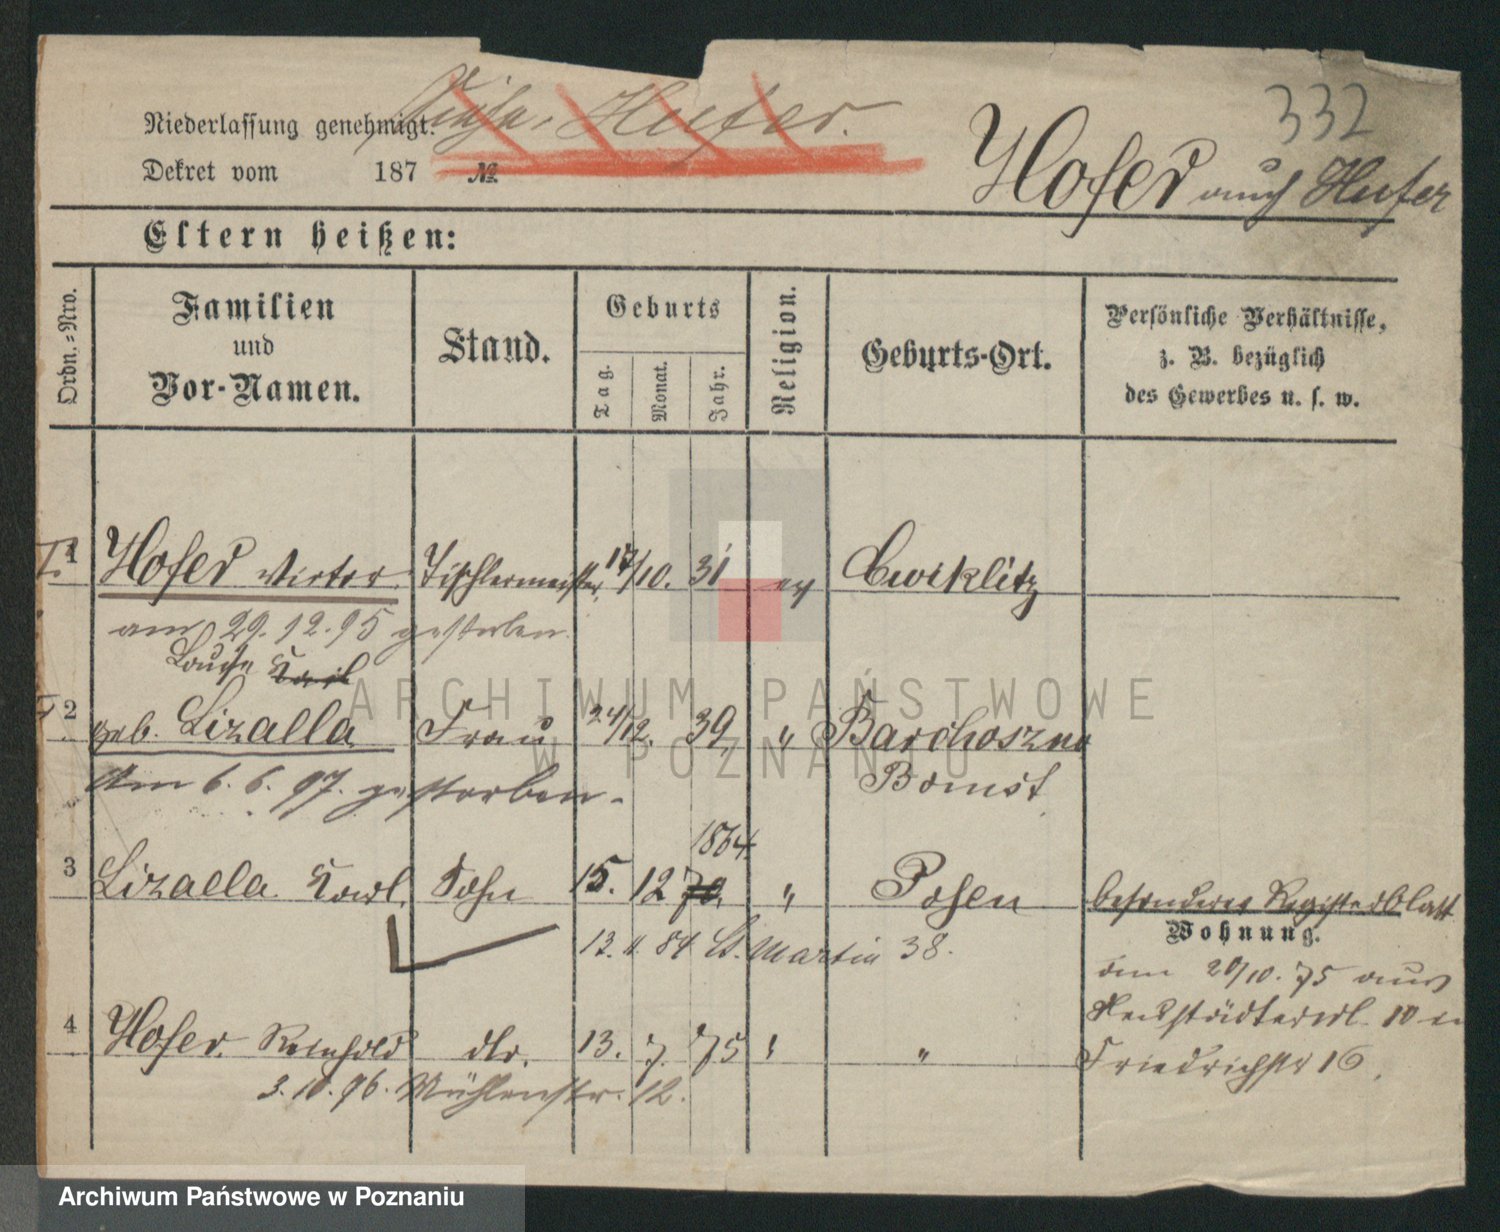 332
Niederlassung genehmigt. Hufer.
Dekret vom 187 №
Hofer auch Hufer
Eltern heißen:
Ordn.-Nro.
Familien und Vor-Namen.
Stand.
Geburts
Tag.
Monat.
Jahr.
Religion.
Geburts-Ort.
Persönliche Verhältnisse,
z. B. bezüglich
des Gewerbes u. s. w.
1 Hofer Victor Tischlermeister 17/10. 31 ev Cwiklitz
am 29.12.95 gestorben.
Louise Karl
2 geb. Lizalla Frau 24/12. 39, " Barchoszno
Am 6.6.97. gestorben. Bomst
1864.
3 Lizalla Karl. Sohn 15. 12 70. " Posen besonderes Registerblatt
Wohnung.
12. 11. 84 St. Martin 38.
am 20/10. 75 aus
Neustädterstr. 10 in
Friedrichstr 16.
4 Hofer. Reinhold do. 13. 7. 75 " "
3.10.96. Mühlenstr. 12.
ARCHIWUM PAŃSTWOWE
W POZNANIU
Archiwum Państwowe w Poznaniu